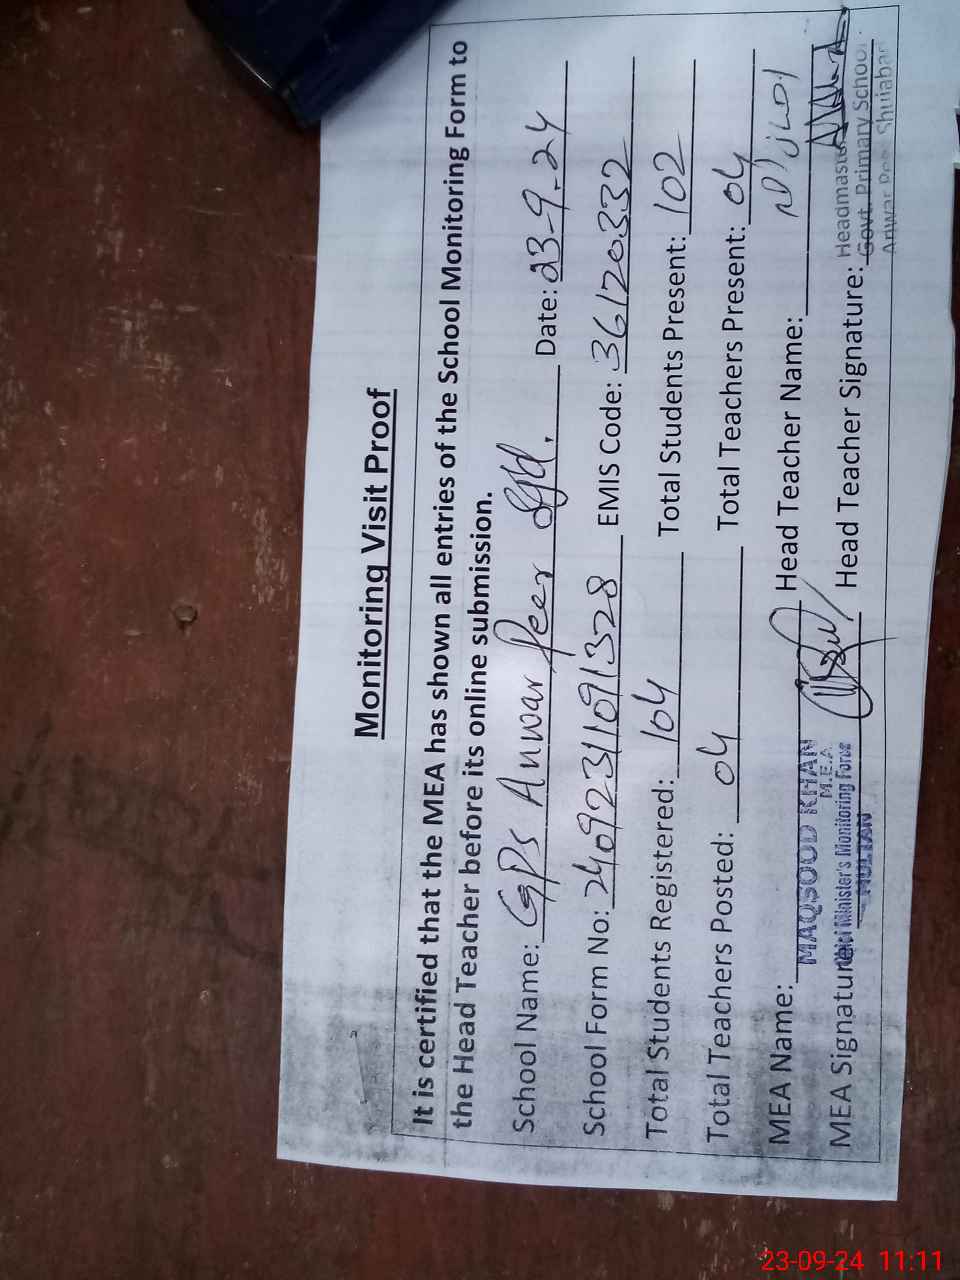 Monitoring Visit Proof
It is certified that the MEA has shown all entries of the School Monitoring Form to
the Head Teacher before its online submission.
School Name: GPS Anwar Peer Date: 23-9-24
School Form No: 24092311091328 EMIS Code: 36120332
Total Students Registered: 104 Total Students Present: 102
Total Teachers Posted: 04 Total Teachers Present: 04
MEA Name: MAQSOOD KHAN Head Teacher Name:
M.E.A
MEA Signature: Head Teacher Signature:
Chief Minister's Monitoring Force
MULTAN
Headmaster
Govt. Primary School
Anwar Peer Shujabad
23-09-24 11:11